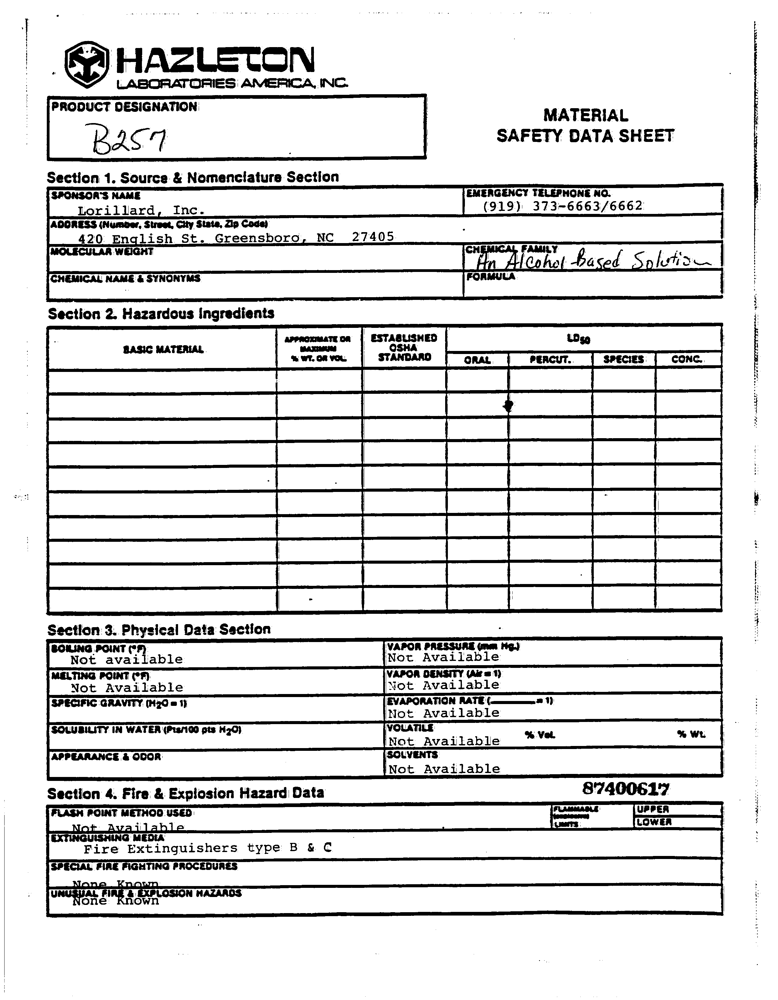 HAZLETON
LABORATORIES AMERICA, INC.
PRODUCT DESIGNATION
B257
MATERIAL
SAFETY DATA SHEET
Section 1. Source & Nomenclature Section
SPONSOR'S NAME
Lorillard, Inc.
EMERGENCY TELEPHONE NO.
(919) 373-6663/6662
ADDRESS (Number, Street, City State, Zip Code)
420 English St. Greensboro, NC 27405
MOLECULAR WEIGHT
CHEMICAL FAMILY
An Alcohol Based Solution
CHEMICAL NAME & SYNONYMS
FORMULA
Section 2. Hazardous Ingredients
BASIC MATERIAL
APPROXIMATE OR
MAXIMUM
% WT. OR VOL.
ESTABLISHED
OSHA
STANDARD
LD50
ORAL
PERCUT.
SPECIES
CONC.
Section 3. Physical Data Section
BOILING POINT (°F)
Not available
VAPOR PRESSURE (mm Hg.)
Not Available
MELTING POINT (°F)
Not Available
VAPOR DENSITY (Air = 1)
Not Available
SPECIFIC GRAVITY (H2O = 1)
EVAPORATION RATE (_____ = 1)
Not Available
SOLUBILITY IN WATER (Pts/100 pts H2O)
VOLATILE
Not Available
% Vol.
% Wt.
APPEARANCE & ODOR
SOLVENTS
Not Available
Section 4. Fire & Explosion Hazard Data
87400617
FLASH POINT METHOD USED
Not Available
FLAMMABLE
LIMITS
UPPER
LOWER
EXTINGUISHING MEDIA
Fire Extinguishers type B & C
SPECIAL FIRE FIGHTING PROCEDURES
None Known
UNUSUAL FIRE & EXPLOSION HAZARDS
None Known